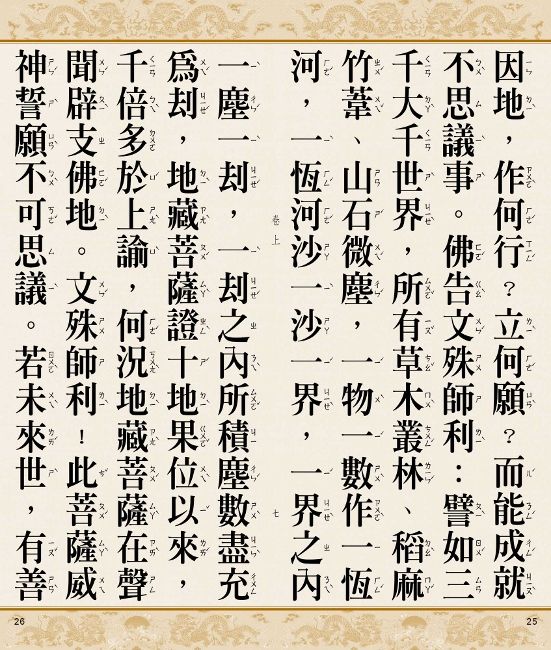 因地，作何行？立何願？而能成就
不思議事。佛告文殊師利：譬如三
千大千世界，所有草木叢林、稻麻
竹葦、山石微塵，一物一數作一恆
河，一恆河沙一沙一界，一界之內
卷上
七
一塵一刦，一刦之內所積塵數盡充
為刦，地藏菩薩證十地果位以來，
千倍多於上諭，何況地藏菩薩在聲
聞辟支佛地。文殊師利！此菩薩威
神誓願不可思議。若未來世，有善
26
25